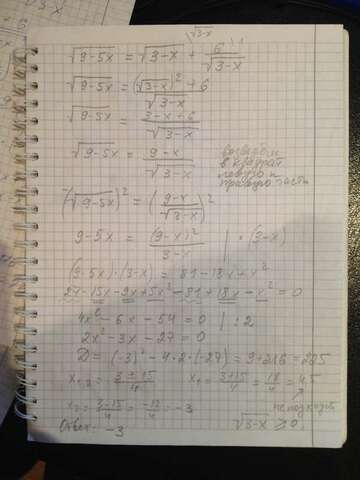 √3-x
√9-5x = √3-x + 6/√3-x
√9-5x = (√3-x)² + 6/√3-x
√9-5x = 3-x+6/√3-x
√9-5x = 9-x/√3-x
возведём
в квадрат
левую и
правую части
(√9-5x)² = (9-x/√3-x)²
9-5x = (9-x)²/3-x | · (3-x)
(9-5x)·(3-x) = 81-18x+x²
27-15x-9x+5x²-81+18x-x²=0
4x²-6x-54=0 | :2
2x²-3x-27=0
D=(-3)²-4·2·(-27)=9+216=225
x₁,₂=3±15/4 x₁=3+15/4=18/4=4,5
не подходит
x₂=3-15/4=-12/4=-3 √3-x ≥0
Ответ: -3